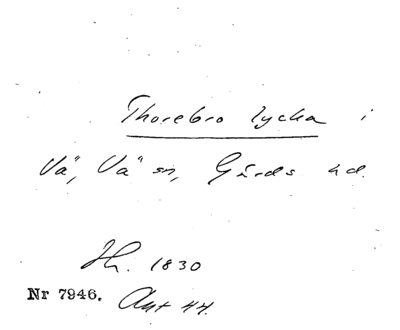 Thorebro lycka i
Vä, Vä sn, Gärds hd.
Hr. 1830
Nr 7946. Aut 44.